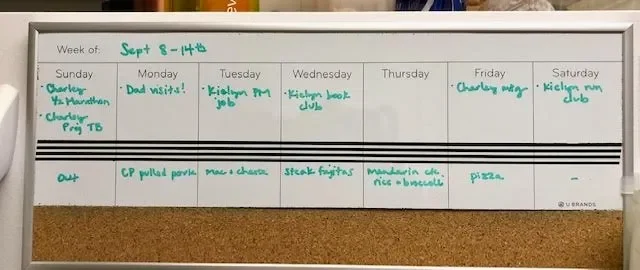 Week of: Sept 8-14th
Sunday Monday Tuesday Wednesday Thursday Friday Saturday
· Charley
1/2 Marathon
· Charley
Proj TB
· Dad visits!
· Kielyn PM
job
· Kielyn book
club
· Charley mtg
· Kielyn run
club
Out
CP pulled pork
Mac + cheese
Steak fajitas
Mandarin ck.
rice + broccoli
pizza
-
U BRANDS